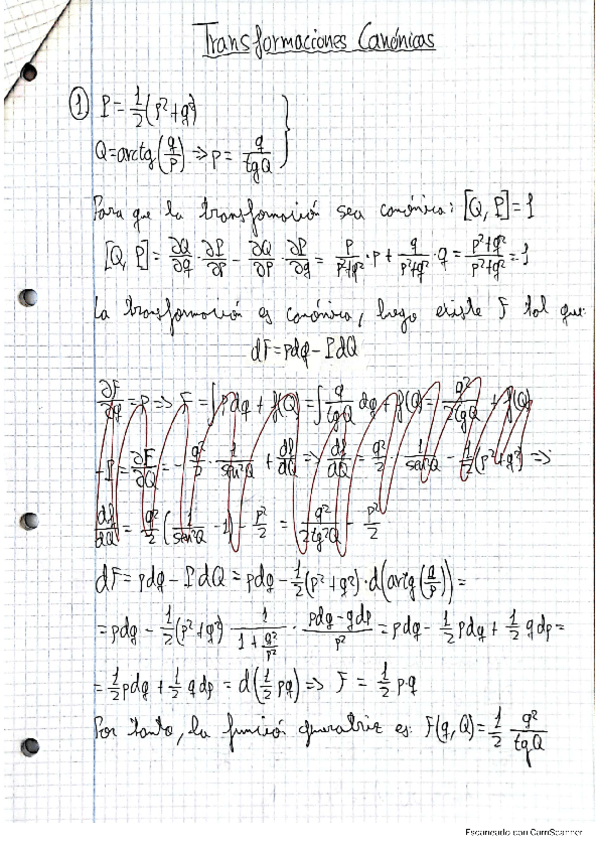 Transformaciones Canónicas
① P=1/2(p²+q²)
Q=arctg(q/p) ⇒ p= q/tgQ
Para que la transformación sea canónica: [Q, P]=1
[Q, P] = ∂Q/∂q · ∂P/∂p − ∂Q/∂p · ∂P/∂q = p/(p²+q²) · p + q/(p²+q²) · q = (p²+q²)/(p²+q²) = 1
La transformación es canónica, luego existe F tal que:
dF=pdq−PdQ
∂F/∂q = p ⇒ F = ∫pdq + f(Q) = ∫ q/tgQ dq + f(Q) = q²/2tgQ + f(Q)
−P = ∂F/∂Q = − q²/2 · 1/sen²Q + df/dQ ⇒ df/dQ = q²/2 · 1/sen²Q − 1/2(p²+q²) ⇒
df/dQ = q²/2 (1/sen²Q − 1) − p²/2 = q²/2tg²Q − p²/2
dF = pdq − PdQ = pdq − 1/2(p²+q²)·d(arctg(q/p)) =
= pdq − 1/2(p²+q²) 1/(1+q²/p²) · (pdq−qdp)/p² = pdq − 1/2 pdq + 1/2 qdp =
= 1/2 pdq + 1/2 qdp = d(1/2 pq) ⇒ F = 1/2 p·q
Por tanto, la función generatriz es: F(q, Q) = 1/2 q²/tgQ
Escaneado con CamScanner